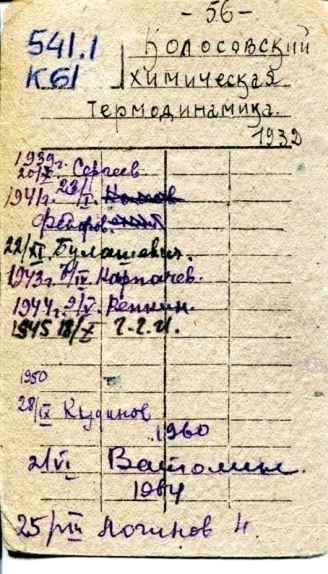 - 56 -
541.1
К61
Колосовский
химическая
термодинамика.
1932
1939г.
20/X Сергеев
1941г. 23/I
Федоров
22/XI Булашевич.
1943г. /IV Карпачев.
1944г. 9/V Репкин.
1945 18/X Г.Г.И.
1950
28/IX
1960
2/VI Ватолин
1964
25/III Логинов